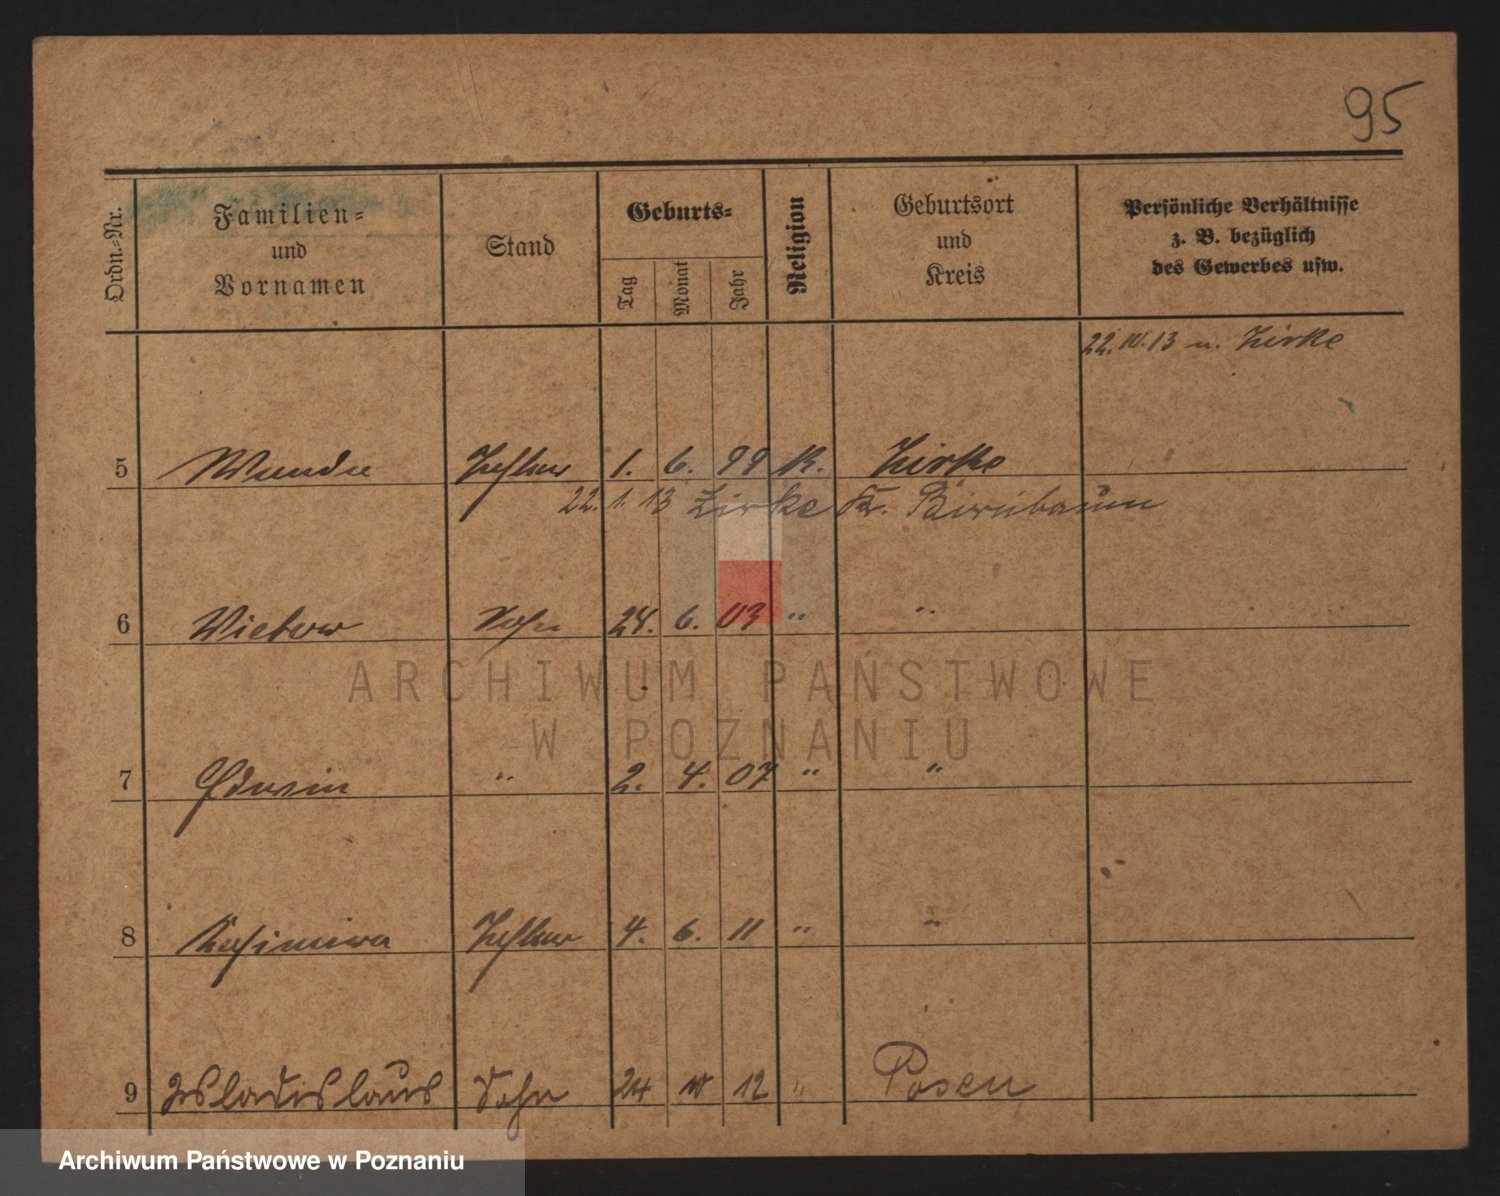 95
Ordn.-Nr. Familien- und Vornamen Stand Geburts- Tag Monat Jahr Religion Geburtsort und Kreis Persönliche Verhältnisse z. B. bezüglich des Gewerbes usw.
22. IV. 13 n. Zirke
5 Wanda Tochter 1. 6. 99 K. Zirke
22. 1. 13 Zirke Kr. Birnbaum
6 Victor Sohn 28. 6. 03 " "
7 Edwin " 2. 4. 07 " "
8 Kasimira Tochter 4. 6. 11 " "
9 Wladislaus Sohn 24 12 " Posen
ARCHIWUM PAŃSTWOWE
W POZNANIU
Archiwum Państwowe w Poznaniu